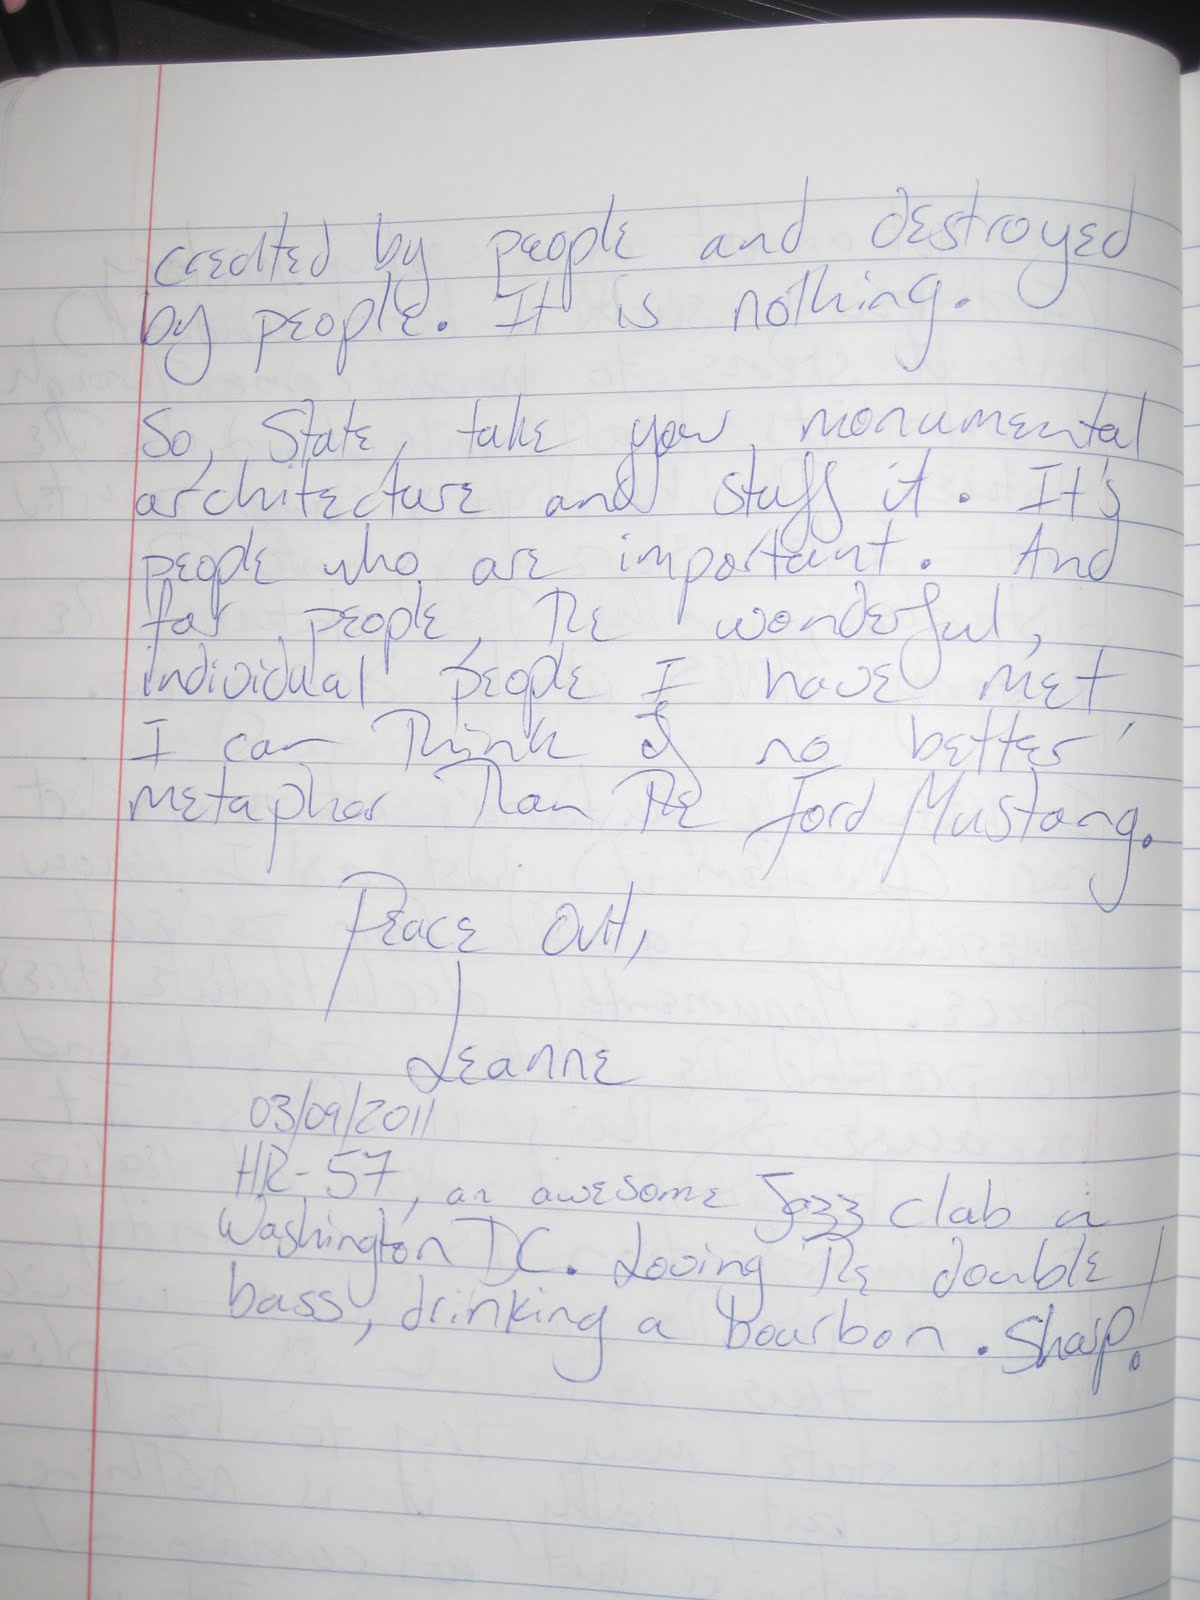 created by people and destroyed
by people. It is nothing.
So, State, take your monumental
architecture and stuff it. It's
people who are important. And
for people, the wonderful,
individual people I have met,
I can think of no better
metaphor than the Ford Mustang.
Peace Out,
Leanne
03/09/2011
HR-57, an awesome Jazz club in
Washington DC. Loving the double
bass, drinking a bourbon. Sharp!